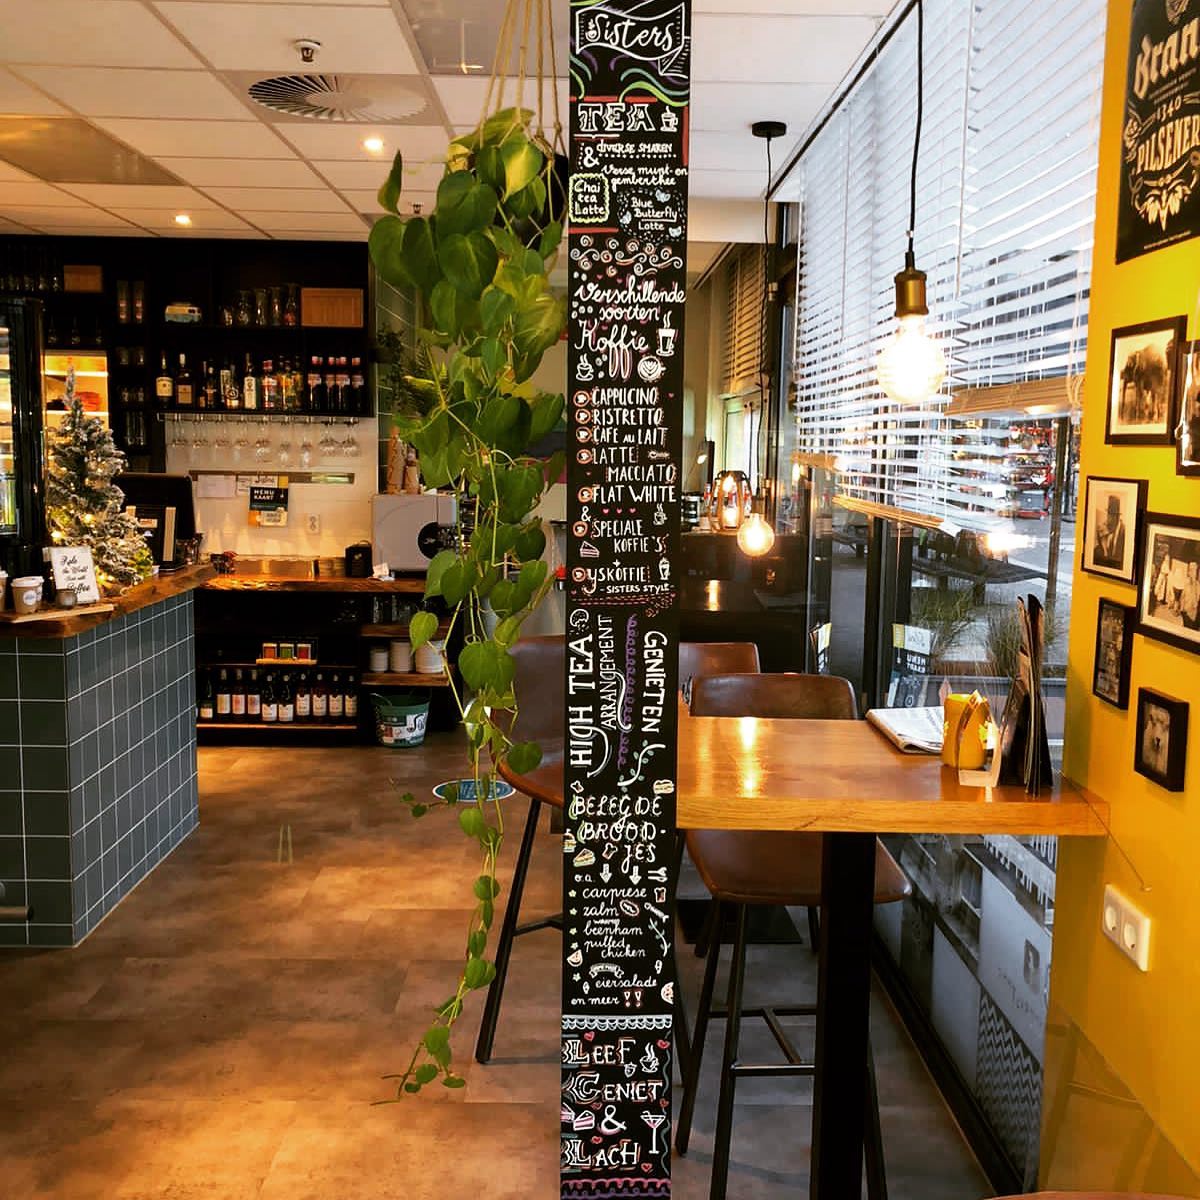 Sisters
TEA
& diverse smaken
Verse munt- en
gemberthee
Chai
tea
Latte
Blue
Butterfly
Latte
Verschillende
soorten
Koffie
CAPPUCINO
RISTRETTO
CAFE AU LAIT
LATTE
MACCIATO
FLAT WHITE
&
SPECIALE
KOFFIE'S
+
YSKOFFIE
- SISTERS STYLE
HIGH TEA
ARRANGEMENT
GENIETEN
BELEGDE
BROOD-
JES
o.a.
carprese
zalm
warme
beenham
pulled
chicken
eiersalade
en meer !!
LEEF
GENIET
&
LACH
MENU
KAART
Bran
1340
PILSENER
MENU